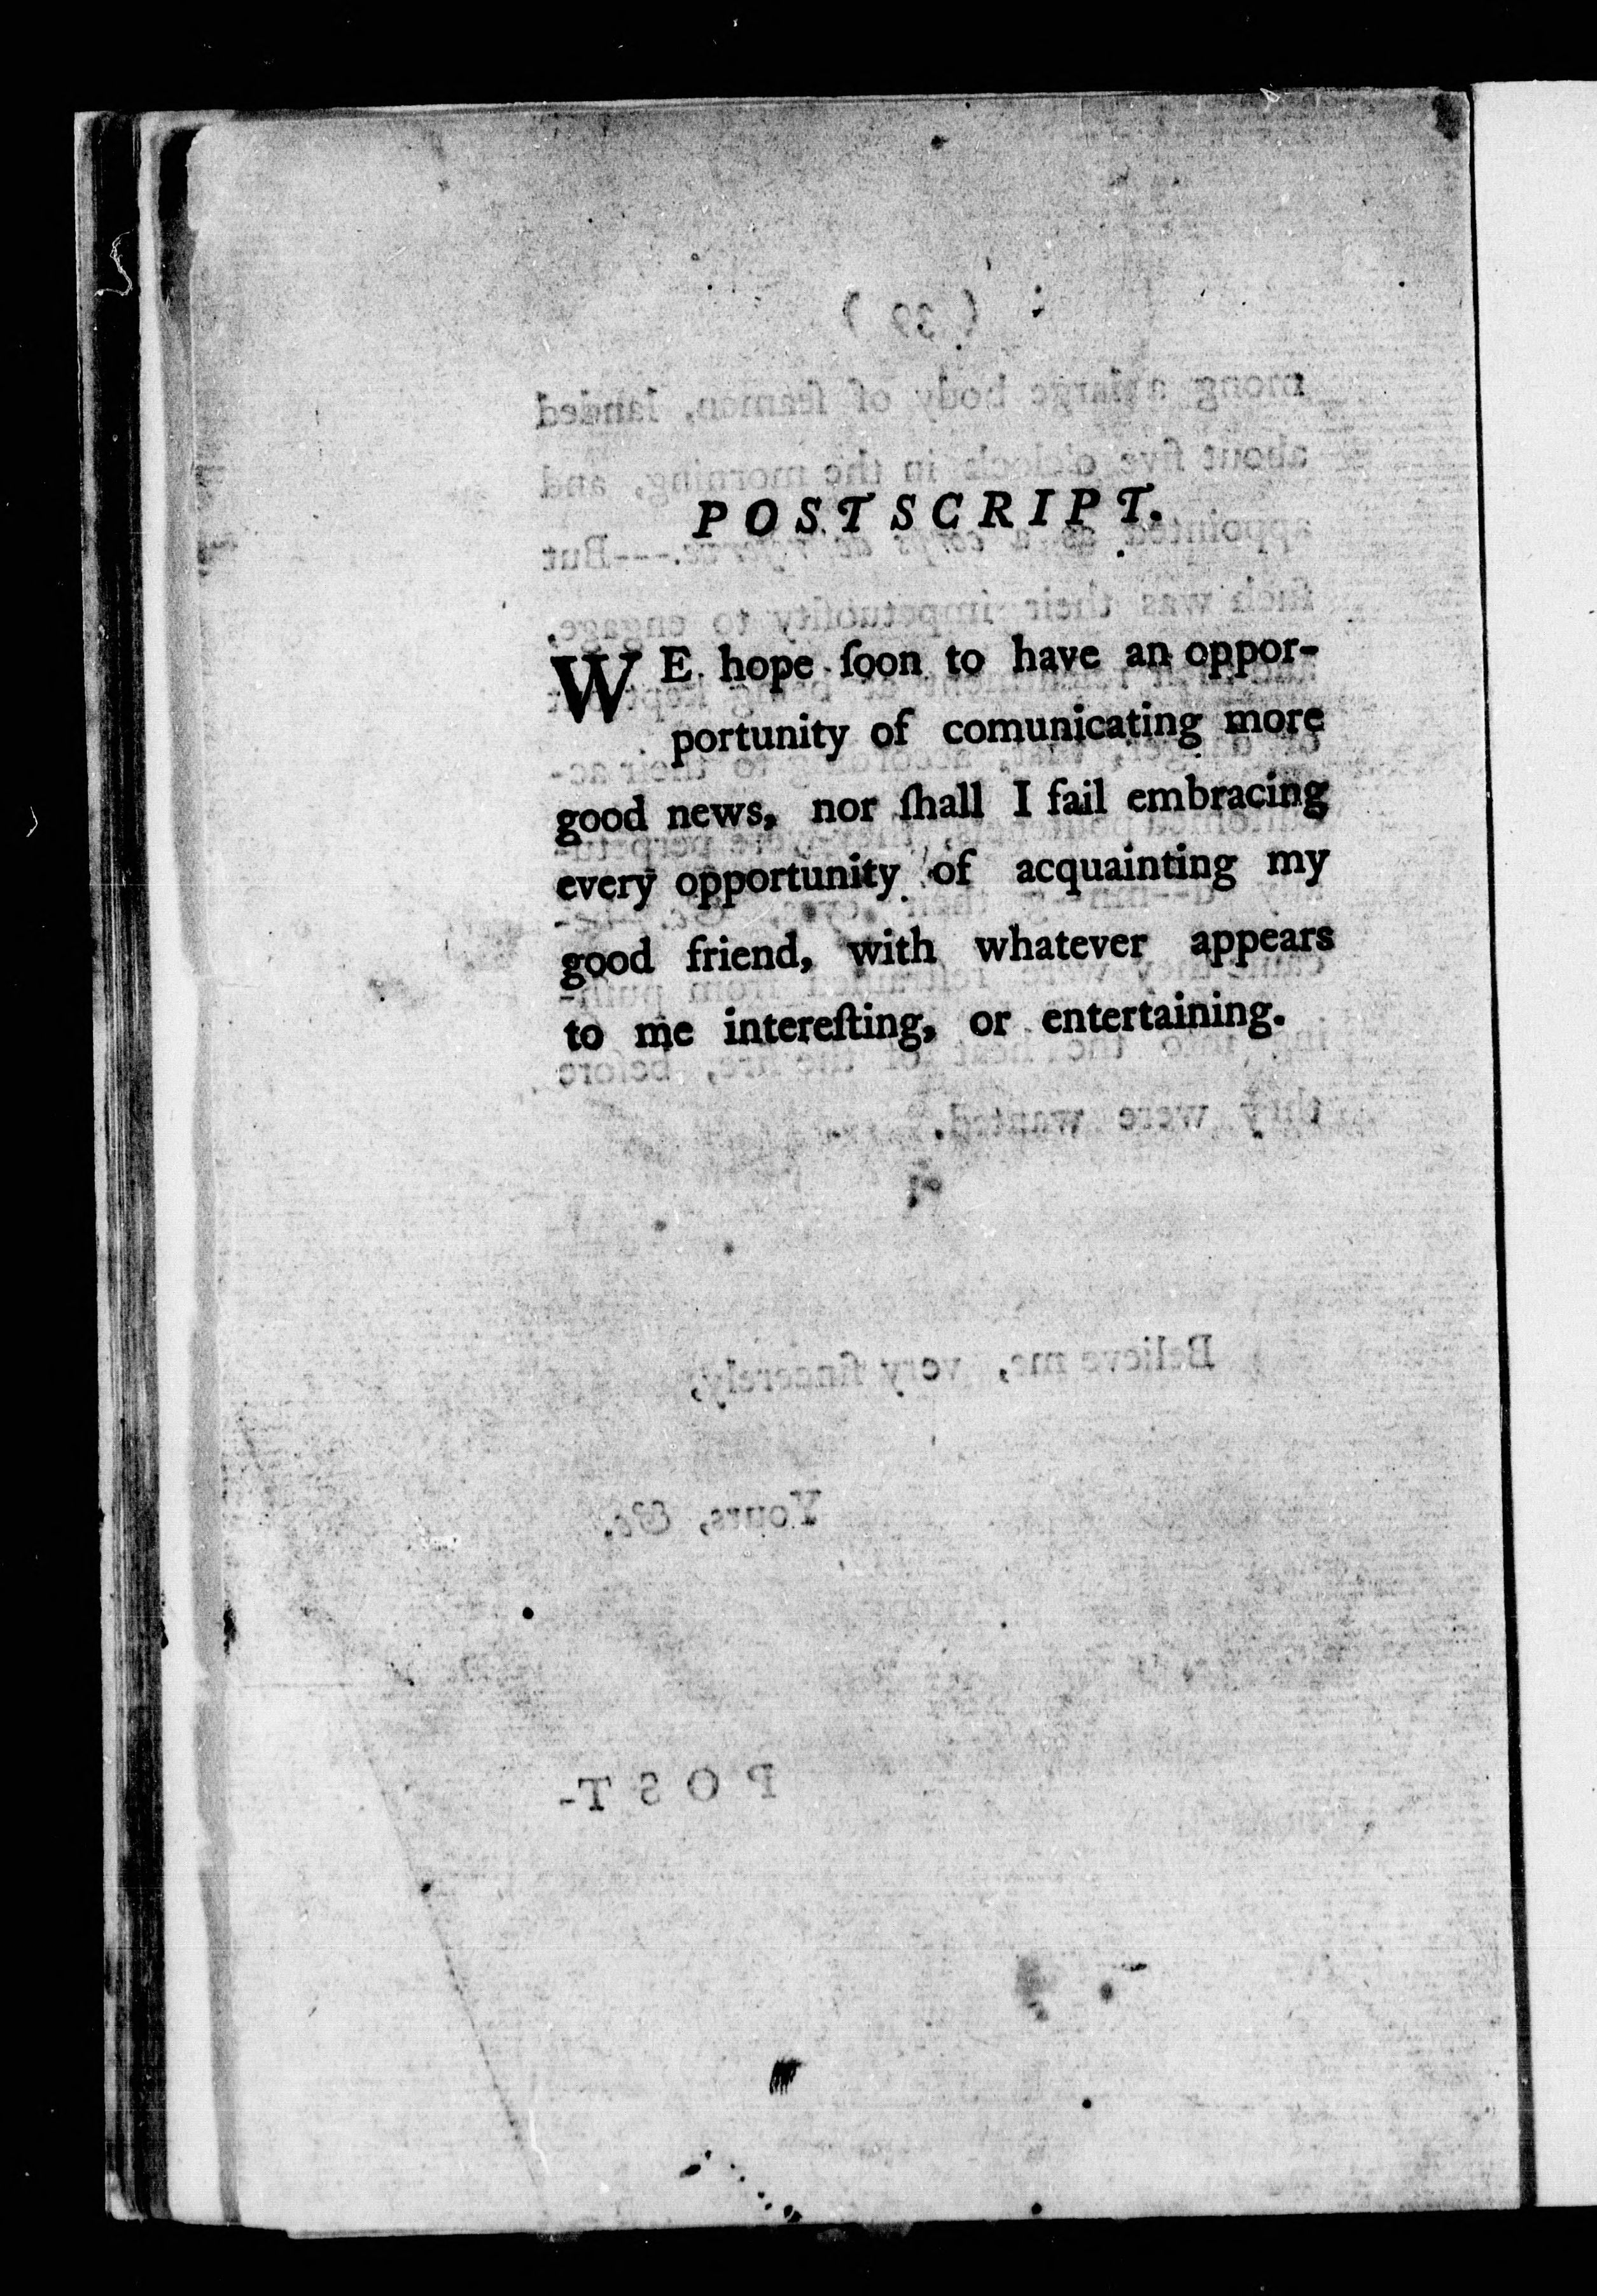 POSTSCRIPT.
WE hope ſoon to have an oppor-
portunity of comunicating more
good news, nor ſhall I fail embracing
every opportunity of acquainting my
good friend, with whatever appears
to me intereſting, or entertaining.